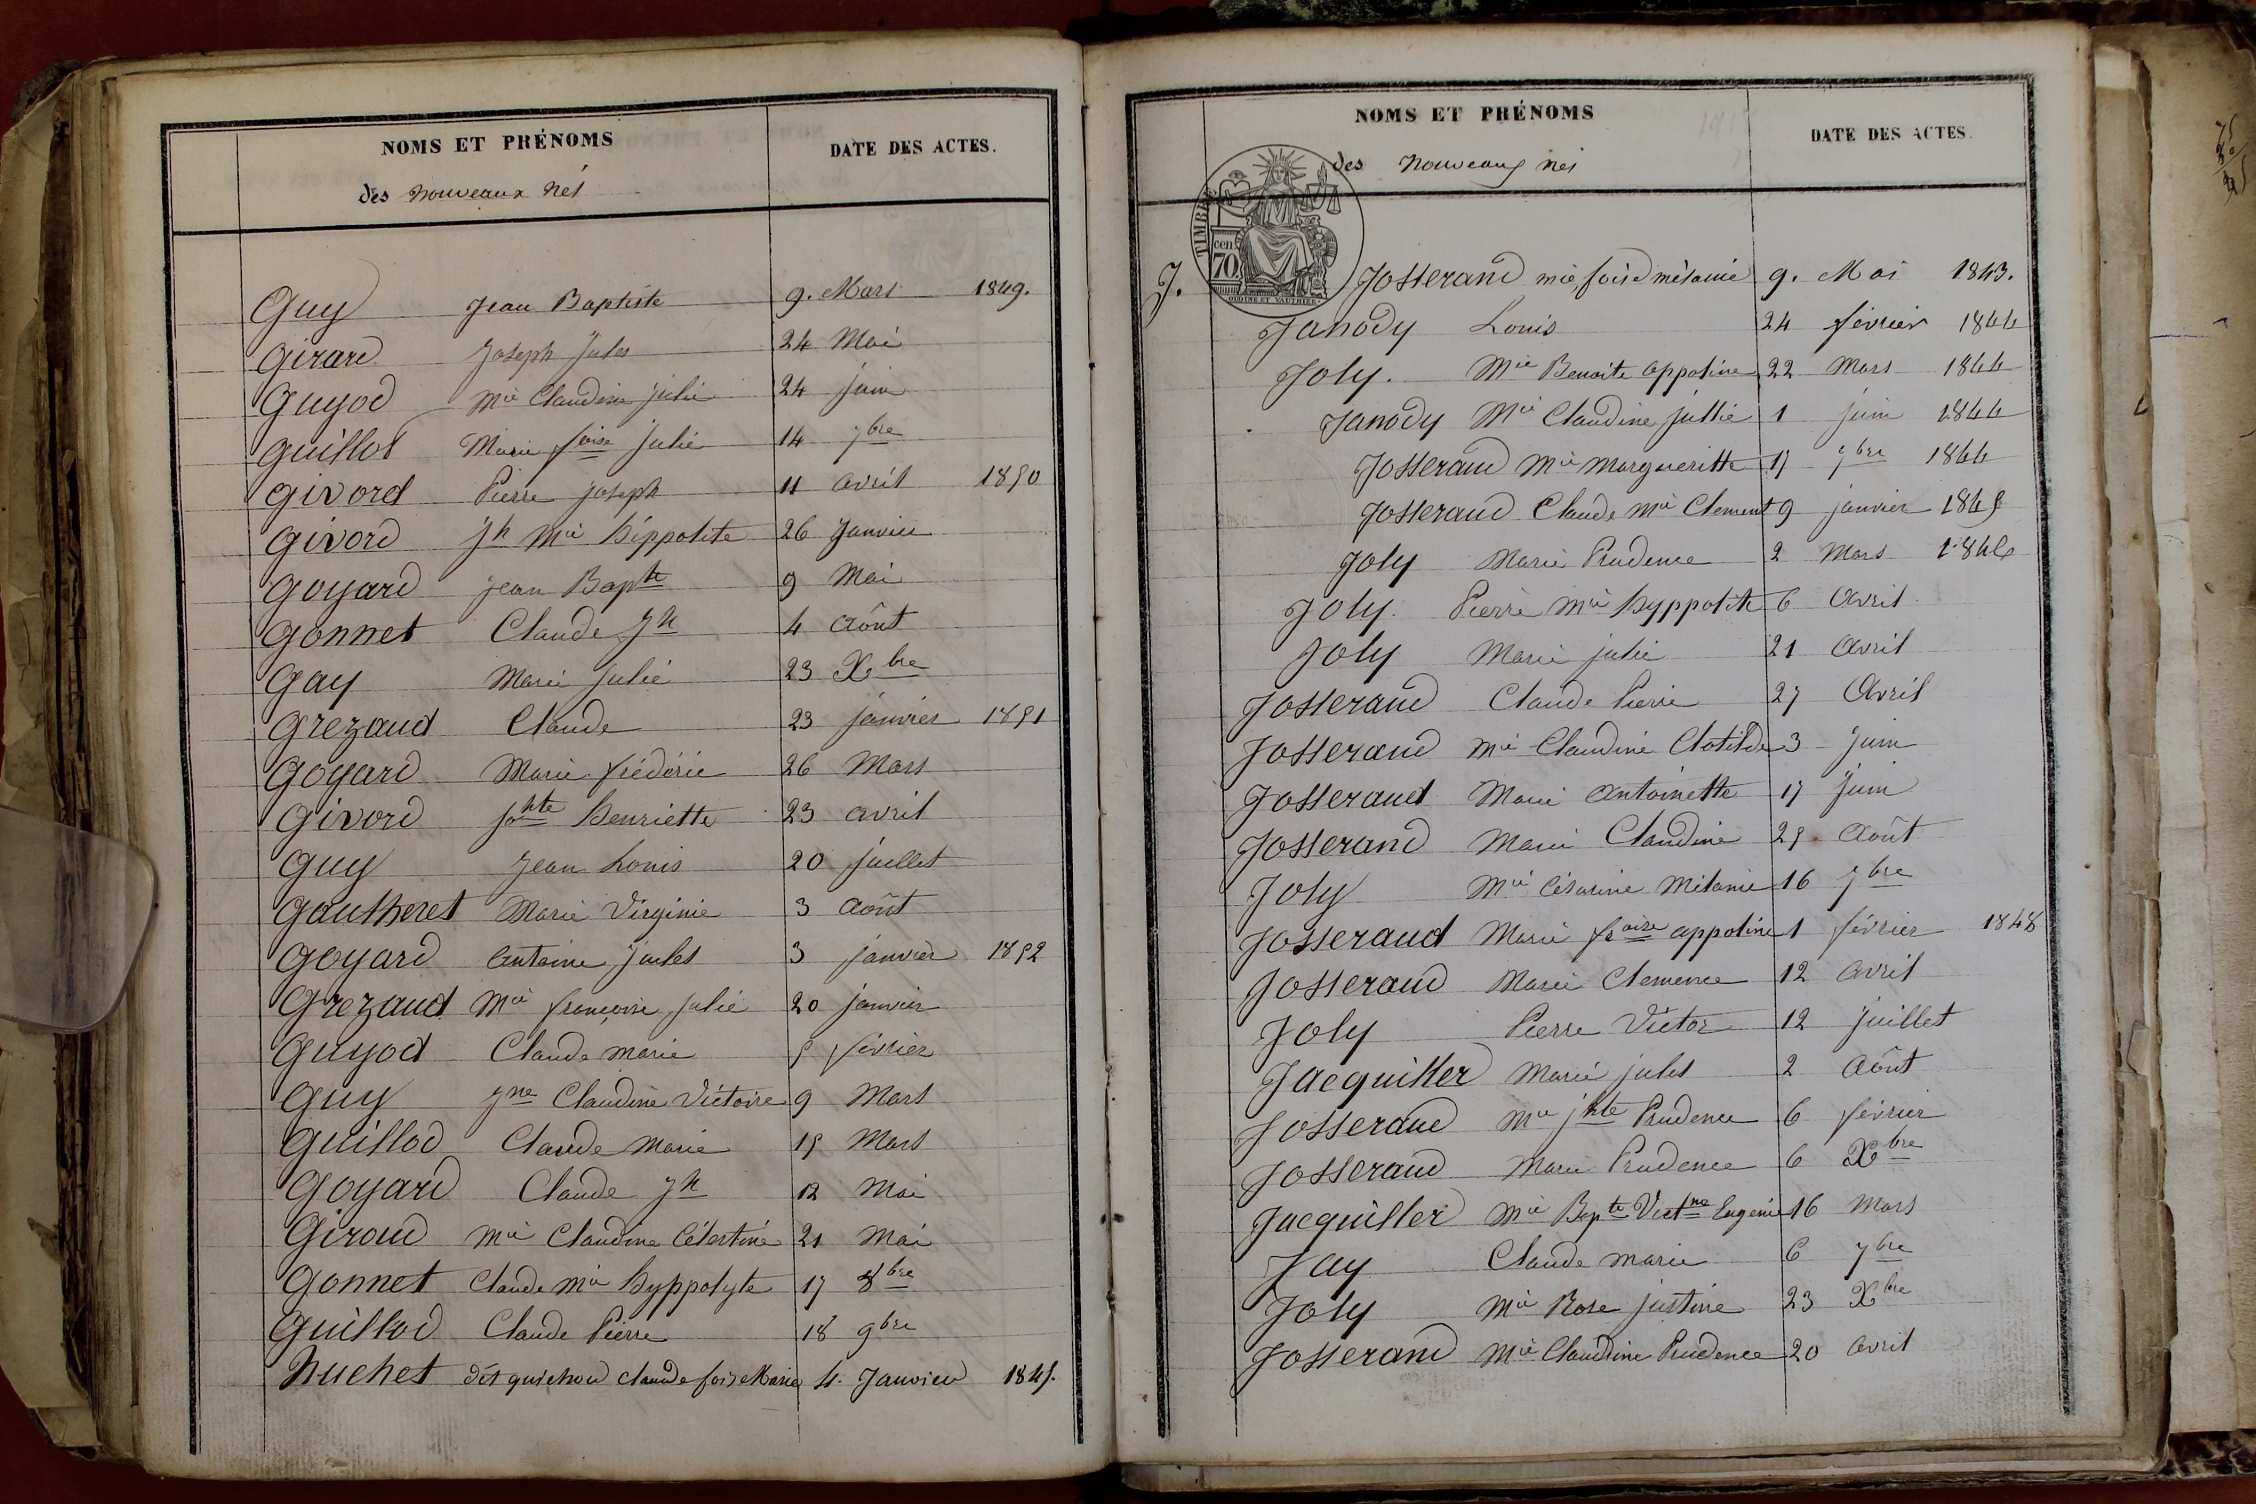 NOMS ET PRÉNOMS DATE DES ACTES.
des Nouveaux Nés
Guy Jean Baptiste 9. Mars 1849.
Girard Joseph Jules 24 Mai
Guyod Mie Claudine Julie 24 juin
Guillot Marie foise Julie 14 7bre
Givord Pierre Joseph 11 avril 1850
Givord Jh Mie hippolite 26 Janvier
Goyard Jean Bapte 9 Mai
Gonnet Claude Jh 4 Août
Gay Marie Julie 23 Xbre
Grezaud Claude 23 janvier 1851
Goyard Marie frédéric 26 Mars
Givord jhte henriette 23 avril
Guy Jean Louis 20 juillet
Gautheret Marie Virginie 3 Août
Goyard Antoine Jules 3 janvier 1852
Grezaud Mie françoise Julie 20 janvier
Guyod Claude marie 5 février
Guy Jne Claudine Victoire 9 Mars
Guillod Claude Marie 15 Mars
Goyard Claude Jh 12 Mai
Giroud Mie Claudine Célestine 21 Mai
Gonnet Claude Mie hyppolyte 17 8bre
Guillod Claude Pierre 18 9bre
huchet dit guichon claude foise Marie 4. Janvier 1845.
NOMS ET PRÉNOMS DATE DES ACTES.
des Nouveaux Nés
TIMBRE
cen
70
OUDINE ET VAUTHIER
J. Josserand mie foise mélanie 9. Mai 1843.
Janody Louis 24 février 1844
Joly. Mie Benoite appoline 22 Mars 1844
Janody Mie Claudine jullie 1 juin 1844
Josserand Mie Margueritte 17 7bre 1844
Josserand Claude Mie Clement 9 janvier 1845
Joly Marie Prudence 2 Mars 1846
Joly. Pierre Mie hyppolite 6 Avril
Joly Marie julie 21 Avril
Josserand Claude Pierre 27 Avril
Josserand Mie Claudine Clotilde 3 Juin
Josserand Marie Antoinette 17 Juin
Josserand Marie Claudine 25 Août
Joly Mie Césarine Mélanie 16 7bre
Josserand Marie froise appoline 1 février 1848
Josserand Marie Clemence 12 avril
Joly Pierre Victor 12 juillet
Jacquiller Marie jules 2 Août
Josserand Mie jhte Prudence 6 février
Josserand Marie Prudence 6 Xbre
Jacquiller Mie Bapte Victne Eugénie 16 Mars
Jay Claude marie 6 7bre
Joly Mie Rose justine 23 Xbre
Josserand Mie Claudine Prudence 20 avril